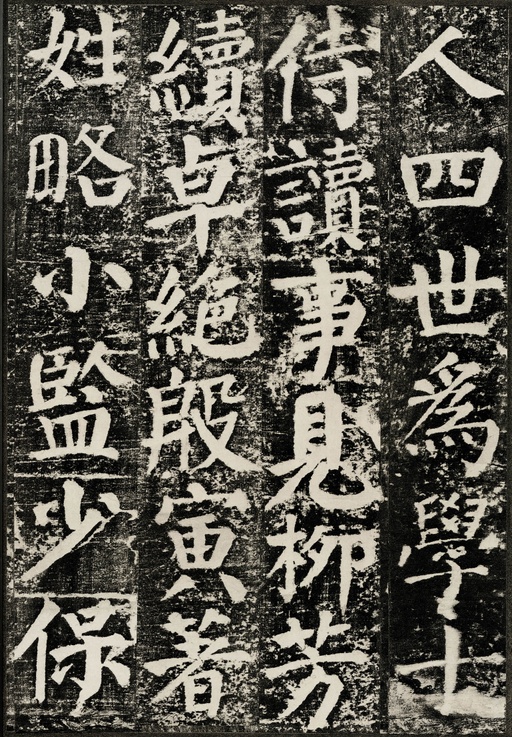 人四世爲學士
侍讀事見柳芳
續卓絶殷寅著
姓略小監少保